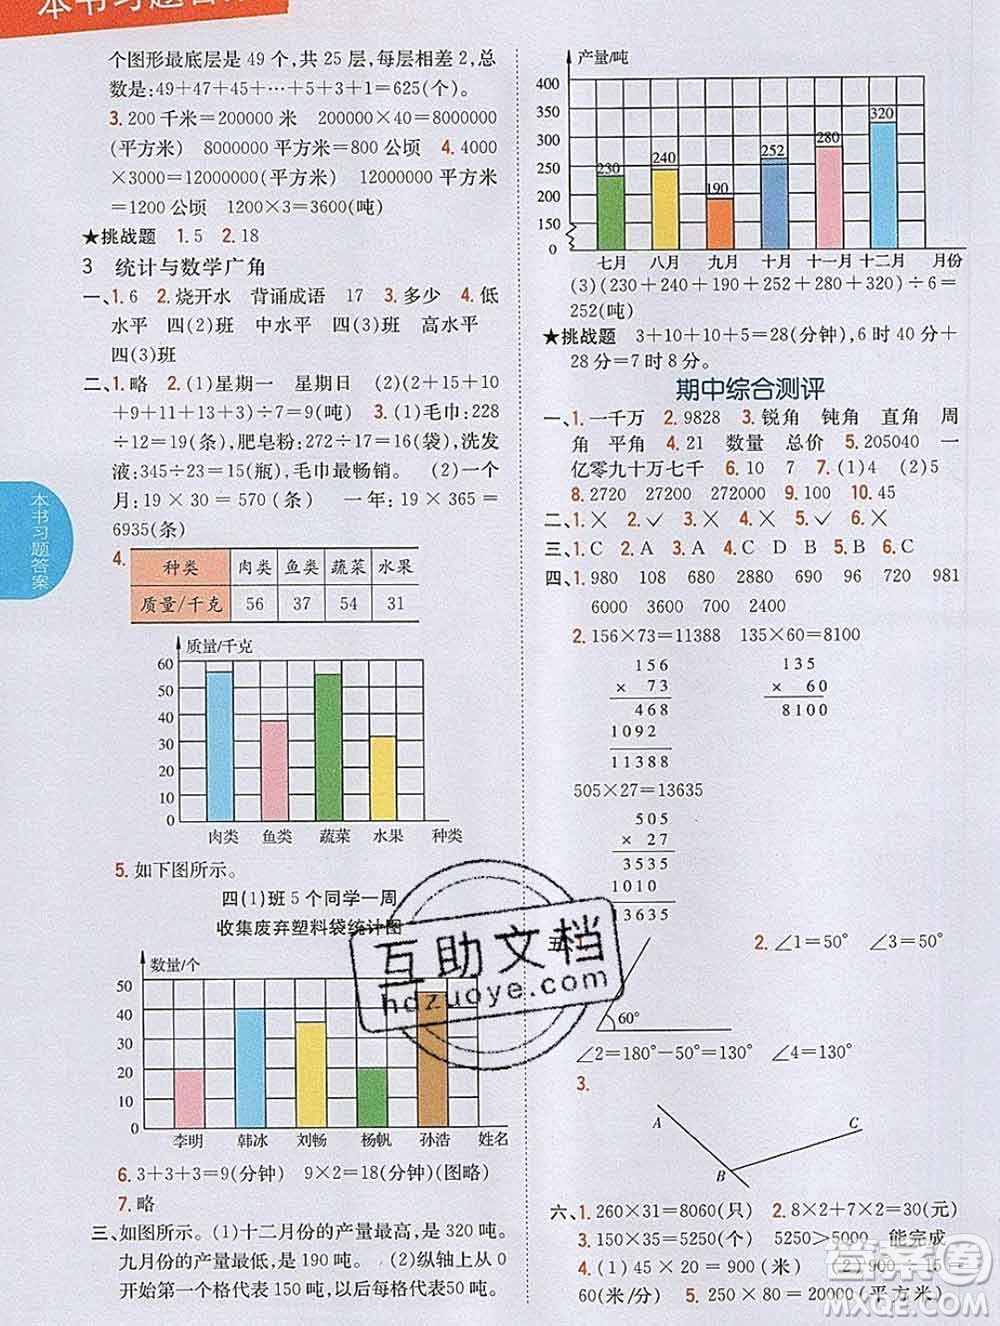 本书习题答案
个图形最底层是 49 个，共 25 层，每层相差 2，总
数是:49+47+45+…+5+3+1=625(个)。
3.200 千米=200000 米 200000×40=8000000
(平方米) 8000000 平方米=800 公顷 4.4000
×3000=12000000(平方米) 12000000 平方米
=1200 公顷 1200×3=3600(吨)
★挑战题 1.5 2.18
3 统计与数学广角
一、1.6 2.烧开水 背诵成语 17 3.多少 4.低
水平 四(2)班 中水平 四(1)班 高水平
四(3)班
二、1.略 2.(1)星期一 星期日 (2)(2+15+10
+9+11+13+3)÷7=9(吨) 3.(1)毛巾:228
÷12=19(条)，肥皂粉:272÷17=16(袋)，洗发
液:345÷23=15(瓶)，毛巾最畅销。 (2)一个
月:19×30=570(条) 一年:19×365=
6935(条)
4.
种类 肉类 鱼类 蔬菜 水果
质量/千克 56 37 54 31
质量/千克
60
50
40
30
20
10
0
肉类 鱼类 蔬菜 水果 种类
5.如下图所示。
四(1)班 5 个同学一周
收集废弃塑料袋统计图
数量/个
50
40
30
20
10
0
李明 韩冰 刘畅 杨帆 孙浩 姓名
6.3+3+3=9(分钟) 9×2=18(分钟)(图略)
7.略
三、如图所示。(1)十二月份的产量最高，是 320 吨。
九月份的产量最低，是 190 吨。 (2)纵轴上从 0
开始第一个格代表 150 吨，以后每格代表 50 吨。
本书习题答案
产量/吨
400
350
300
250
200
150
0
230 240 190 252 280 320
七月 八月 九月 十月 十一月 十二月 月份
(3)(230+240+190+252+280+320)÷6=
252(吨)
★挑战题 3+10+10+5=28(分钟)，6 时 40 分+
28 分=7 时 8 分。
期中综合测评
一、1.一千万 2.9828 3.锐角 钝角 直角 周
角 平角 4.21 数量 总价 5.205040 一
亿零九十万七千 6.10 7 7.(1)4 (2)5
8.2720 27200 272000 9.100 10.45
二、1.× 2.✓ 3.× 4.× 5.× 6.×
三、1.C 2.A 3.B 4.C 5.C
四、1.980 108 680 2880 690 96 720 981
6000 3600 700 2400
2.156×73=11388 135×60=8100
156
× 73
468
1092
11388
135
× 60
8100
505×27=13635
505
× 27
3535
1010
13635
五、
60°
2.∠1=50° ∠3=50°
∠2=180°-50°=130° ∠4=130°
3.
A
B
C
六、1.260×31=8060(只) 2.8×2+7×2=30(元)
3.150×35=5250(个) 5250>5000 能完成
4.(1)45×20=900(米) (2)900÷15=
60(米/分) 5.250×80=20000(平方米)
互助文档
hdzuoye.com
答案圈
MXQE.COM